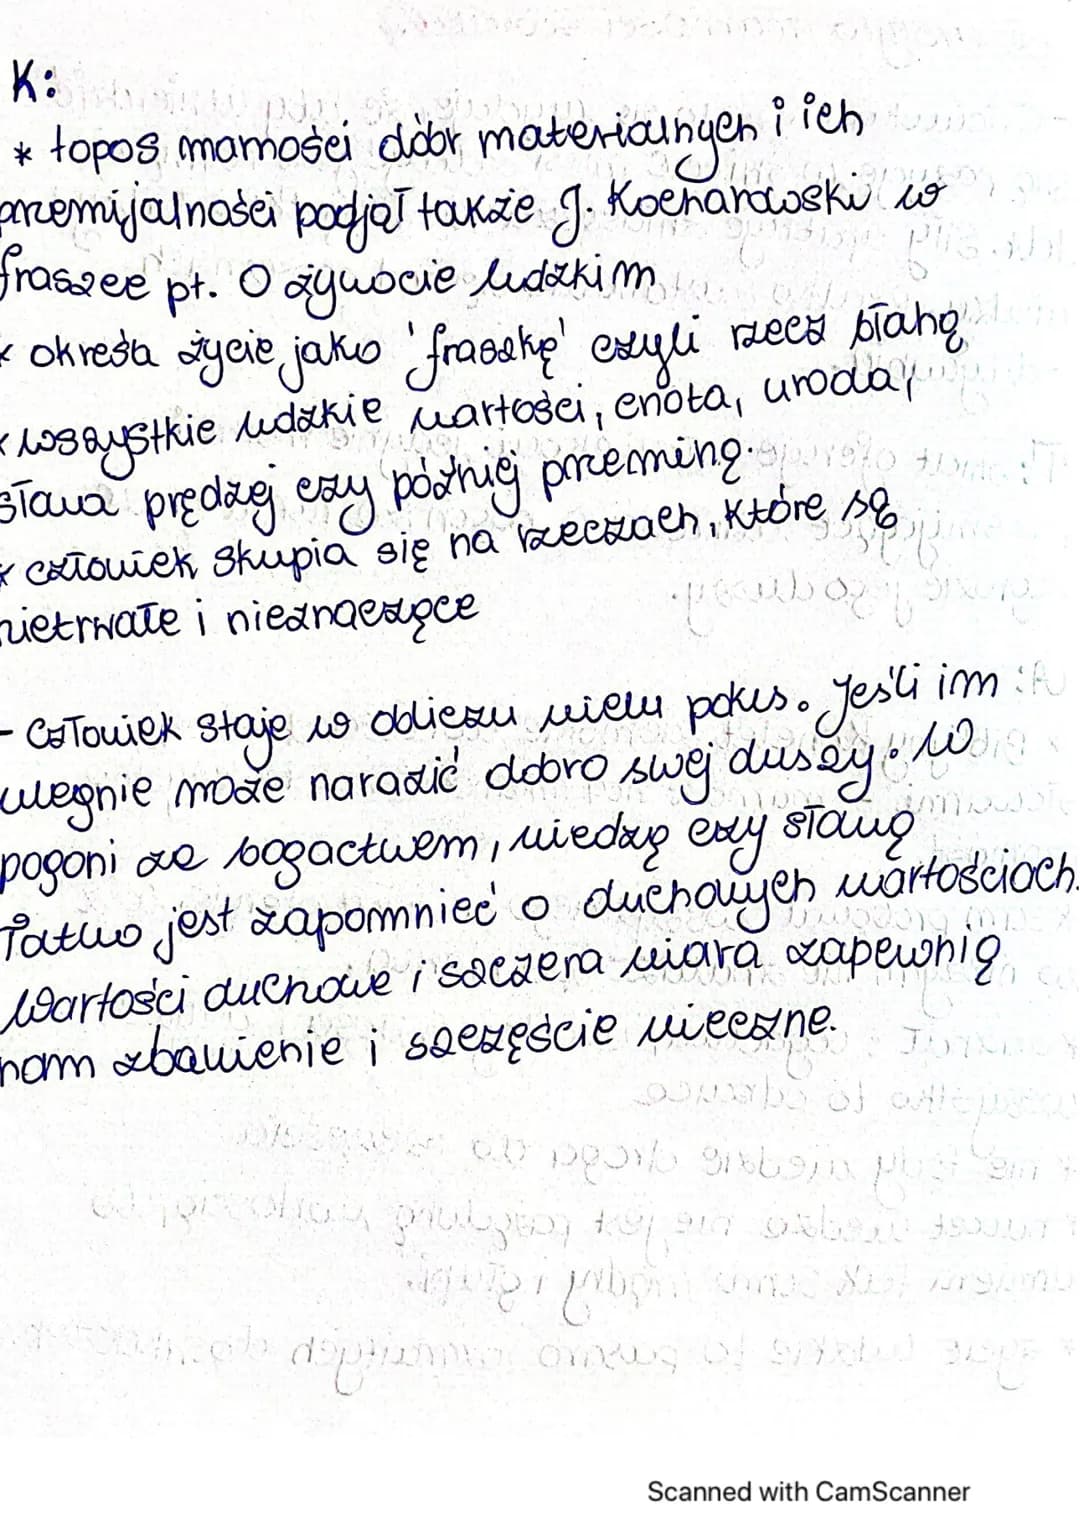 K:
* topos marności dóbr materialnych i ich
przemijalności podjął także J. Kochanowski w
fraszce pt. O żywocie ludzkim
* określa życie jako 'fraszkę' czyli rzecz błahą
* wszystkie ludzkie wartości, cnota, uroda,
sława prędzej czy później przeminą.
* człowiek skupia się na rzeczach, które są
nietrwałe i nieznaczące
- Człowiek staje w obliczu wielu pokus. Jeśli im
ulegnie może narazić dobro swej duszy. W
pogoni za bogactwem, wiedzą czy sławą
łatwo jest zapomnieć o duchowych wartościach.
Wartości duchowe i szczera wiara zapewnią
nam zbawienie i szczęście wieczne.
Scanned with CamScanner